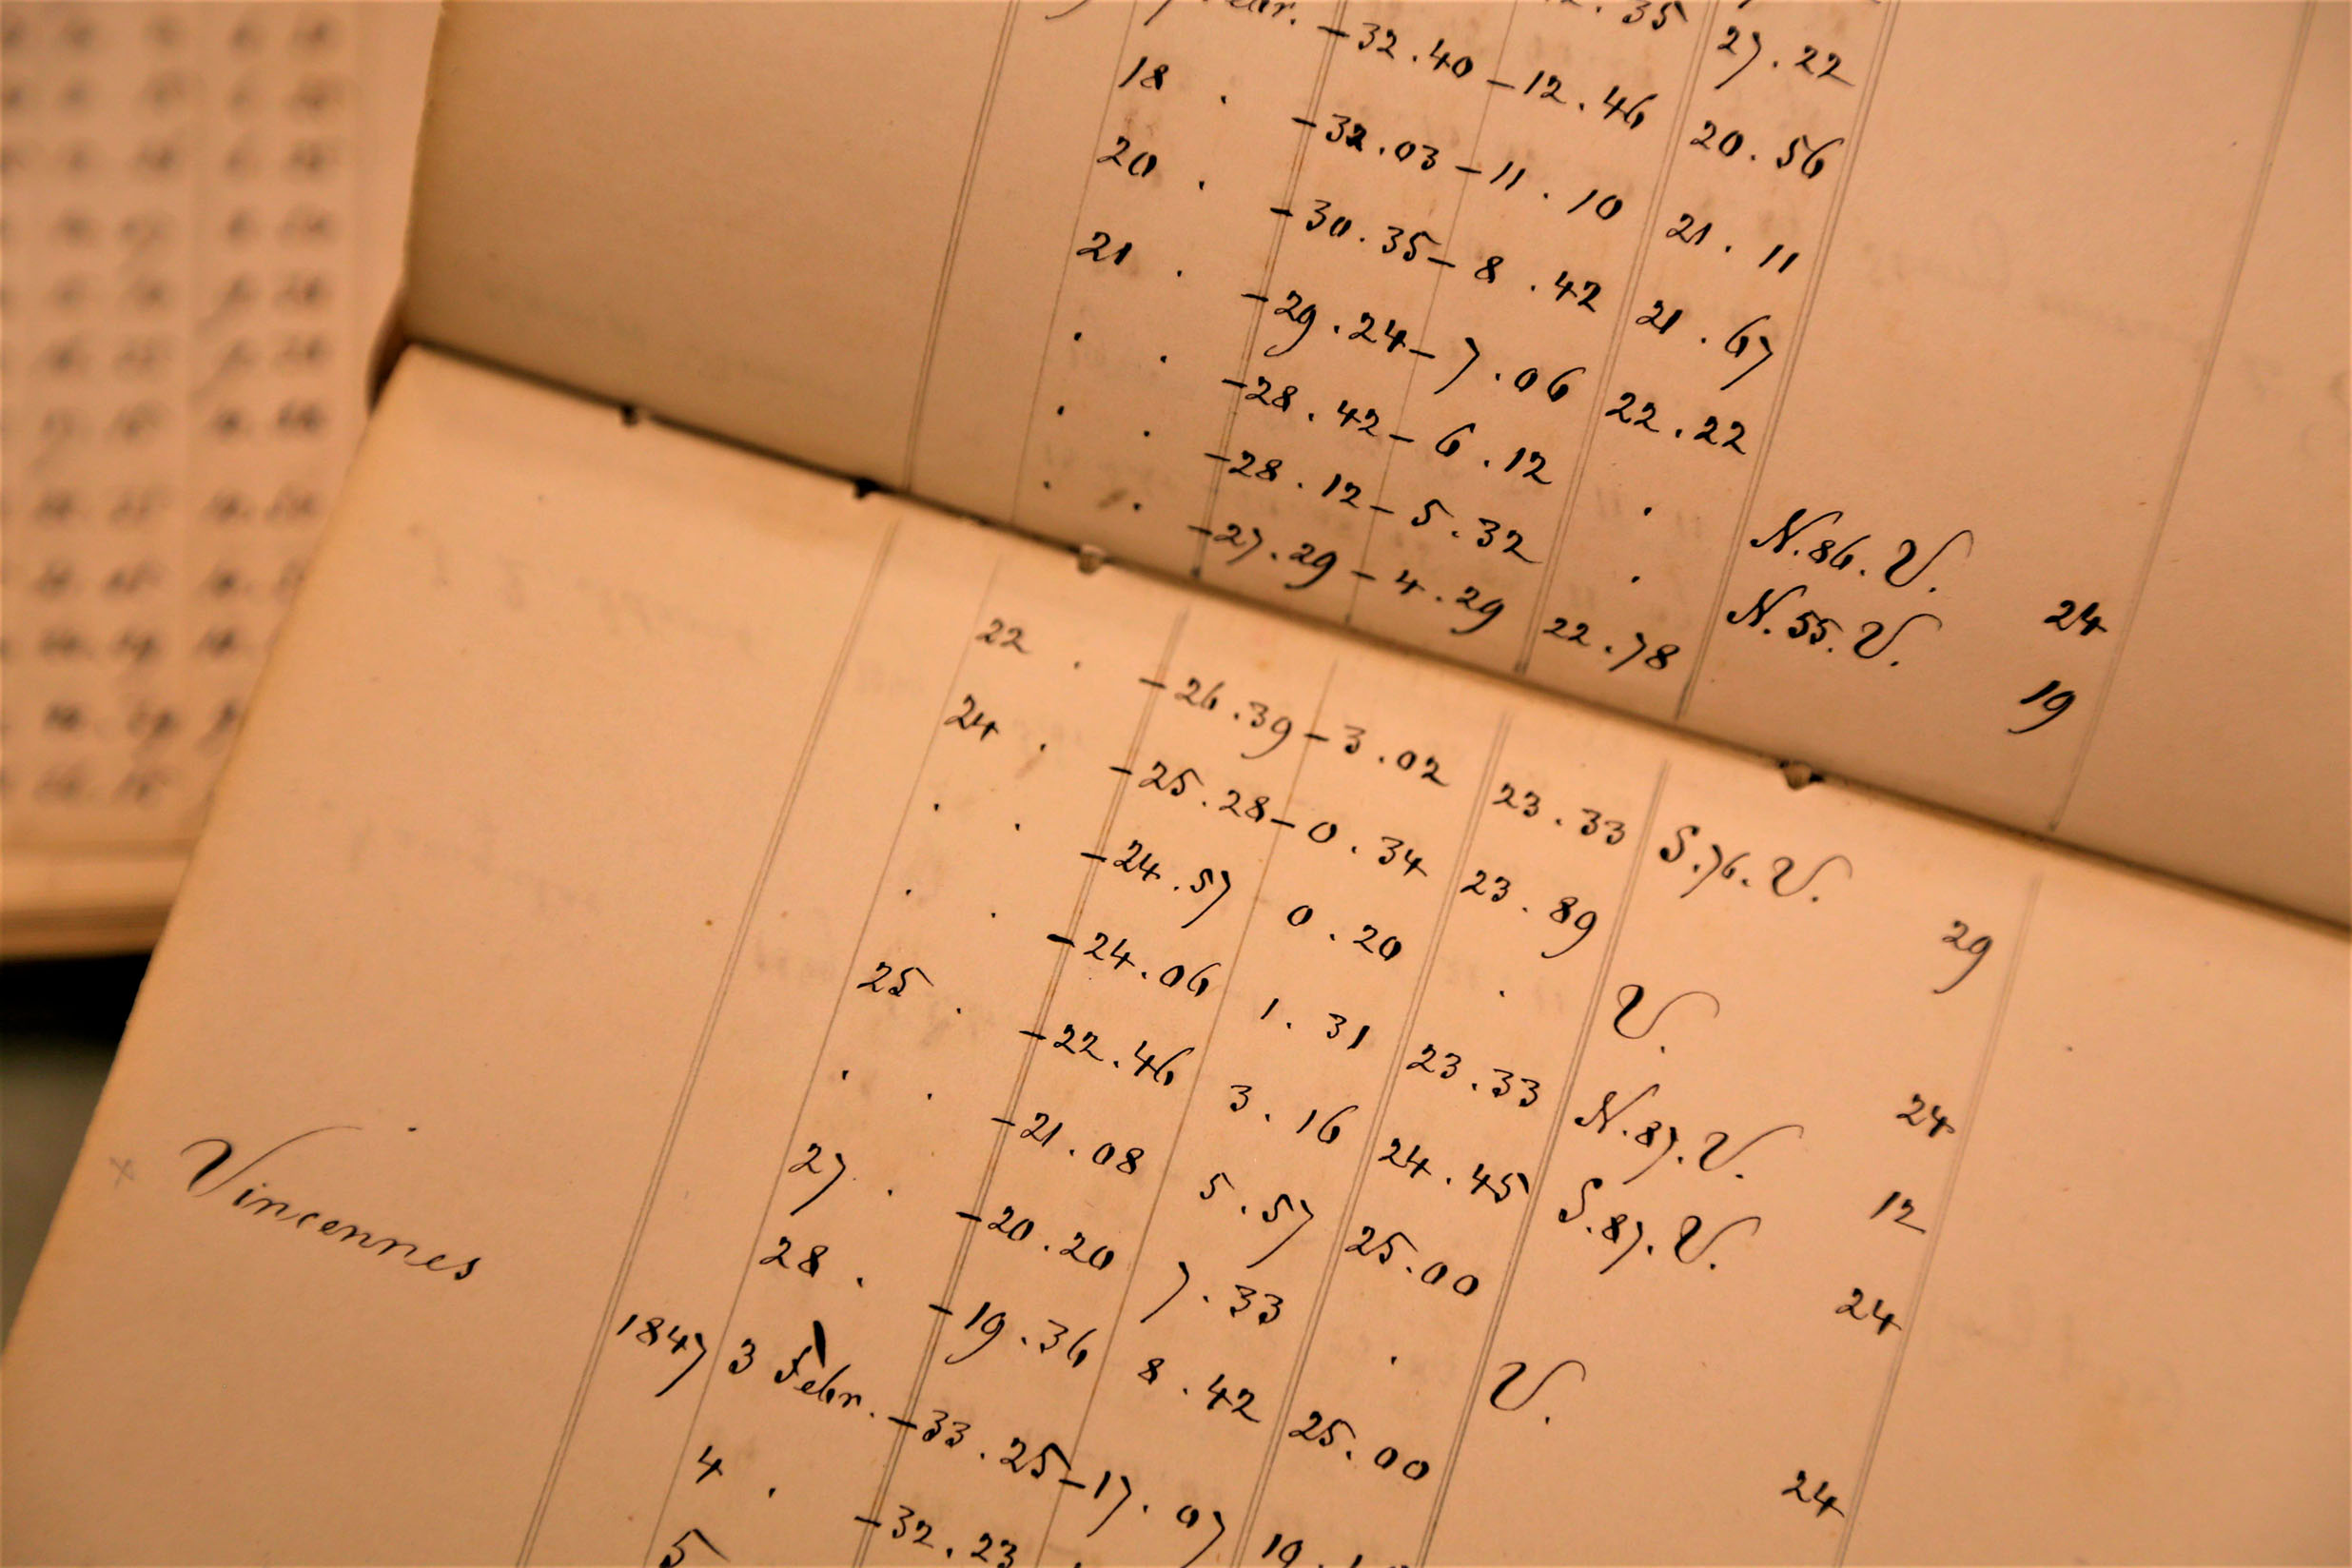 .35 27.22
Febr. -32.40 -12.46 20.56
18 . -32.03 -11.10 21.11
20 . -30.35 -8.42 21.67
21 . -29.24 -7.06 22.22
. . -28.42 -6.12 . N.86.V. 24
. . -28.12 -5.32 . N.55.V. 19
. . -27.29 -4.29 22.78
22 . -26.39 -3.02 23.33 S.76.V. 29
24 . -25.28 -0.34 23.89
. . -24.57 0.20 . V. 24
. . -24.06 1.31 23.33 N.87.V. 12
25 . -22.46 3.16 24.45 S.87.V. 24
. . -21.08 5.57 25.00
27 . -20.20 7.33 . V. 24
28 . -19.36 8.42 25.00
Vincennes 1847 3 Febr. -33.25 -17.07 19.
4 . -32.23
5